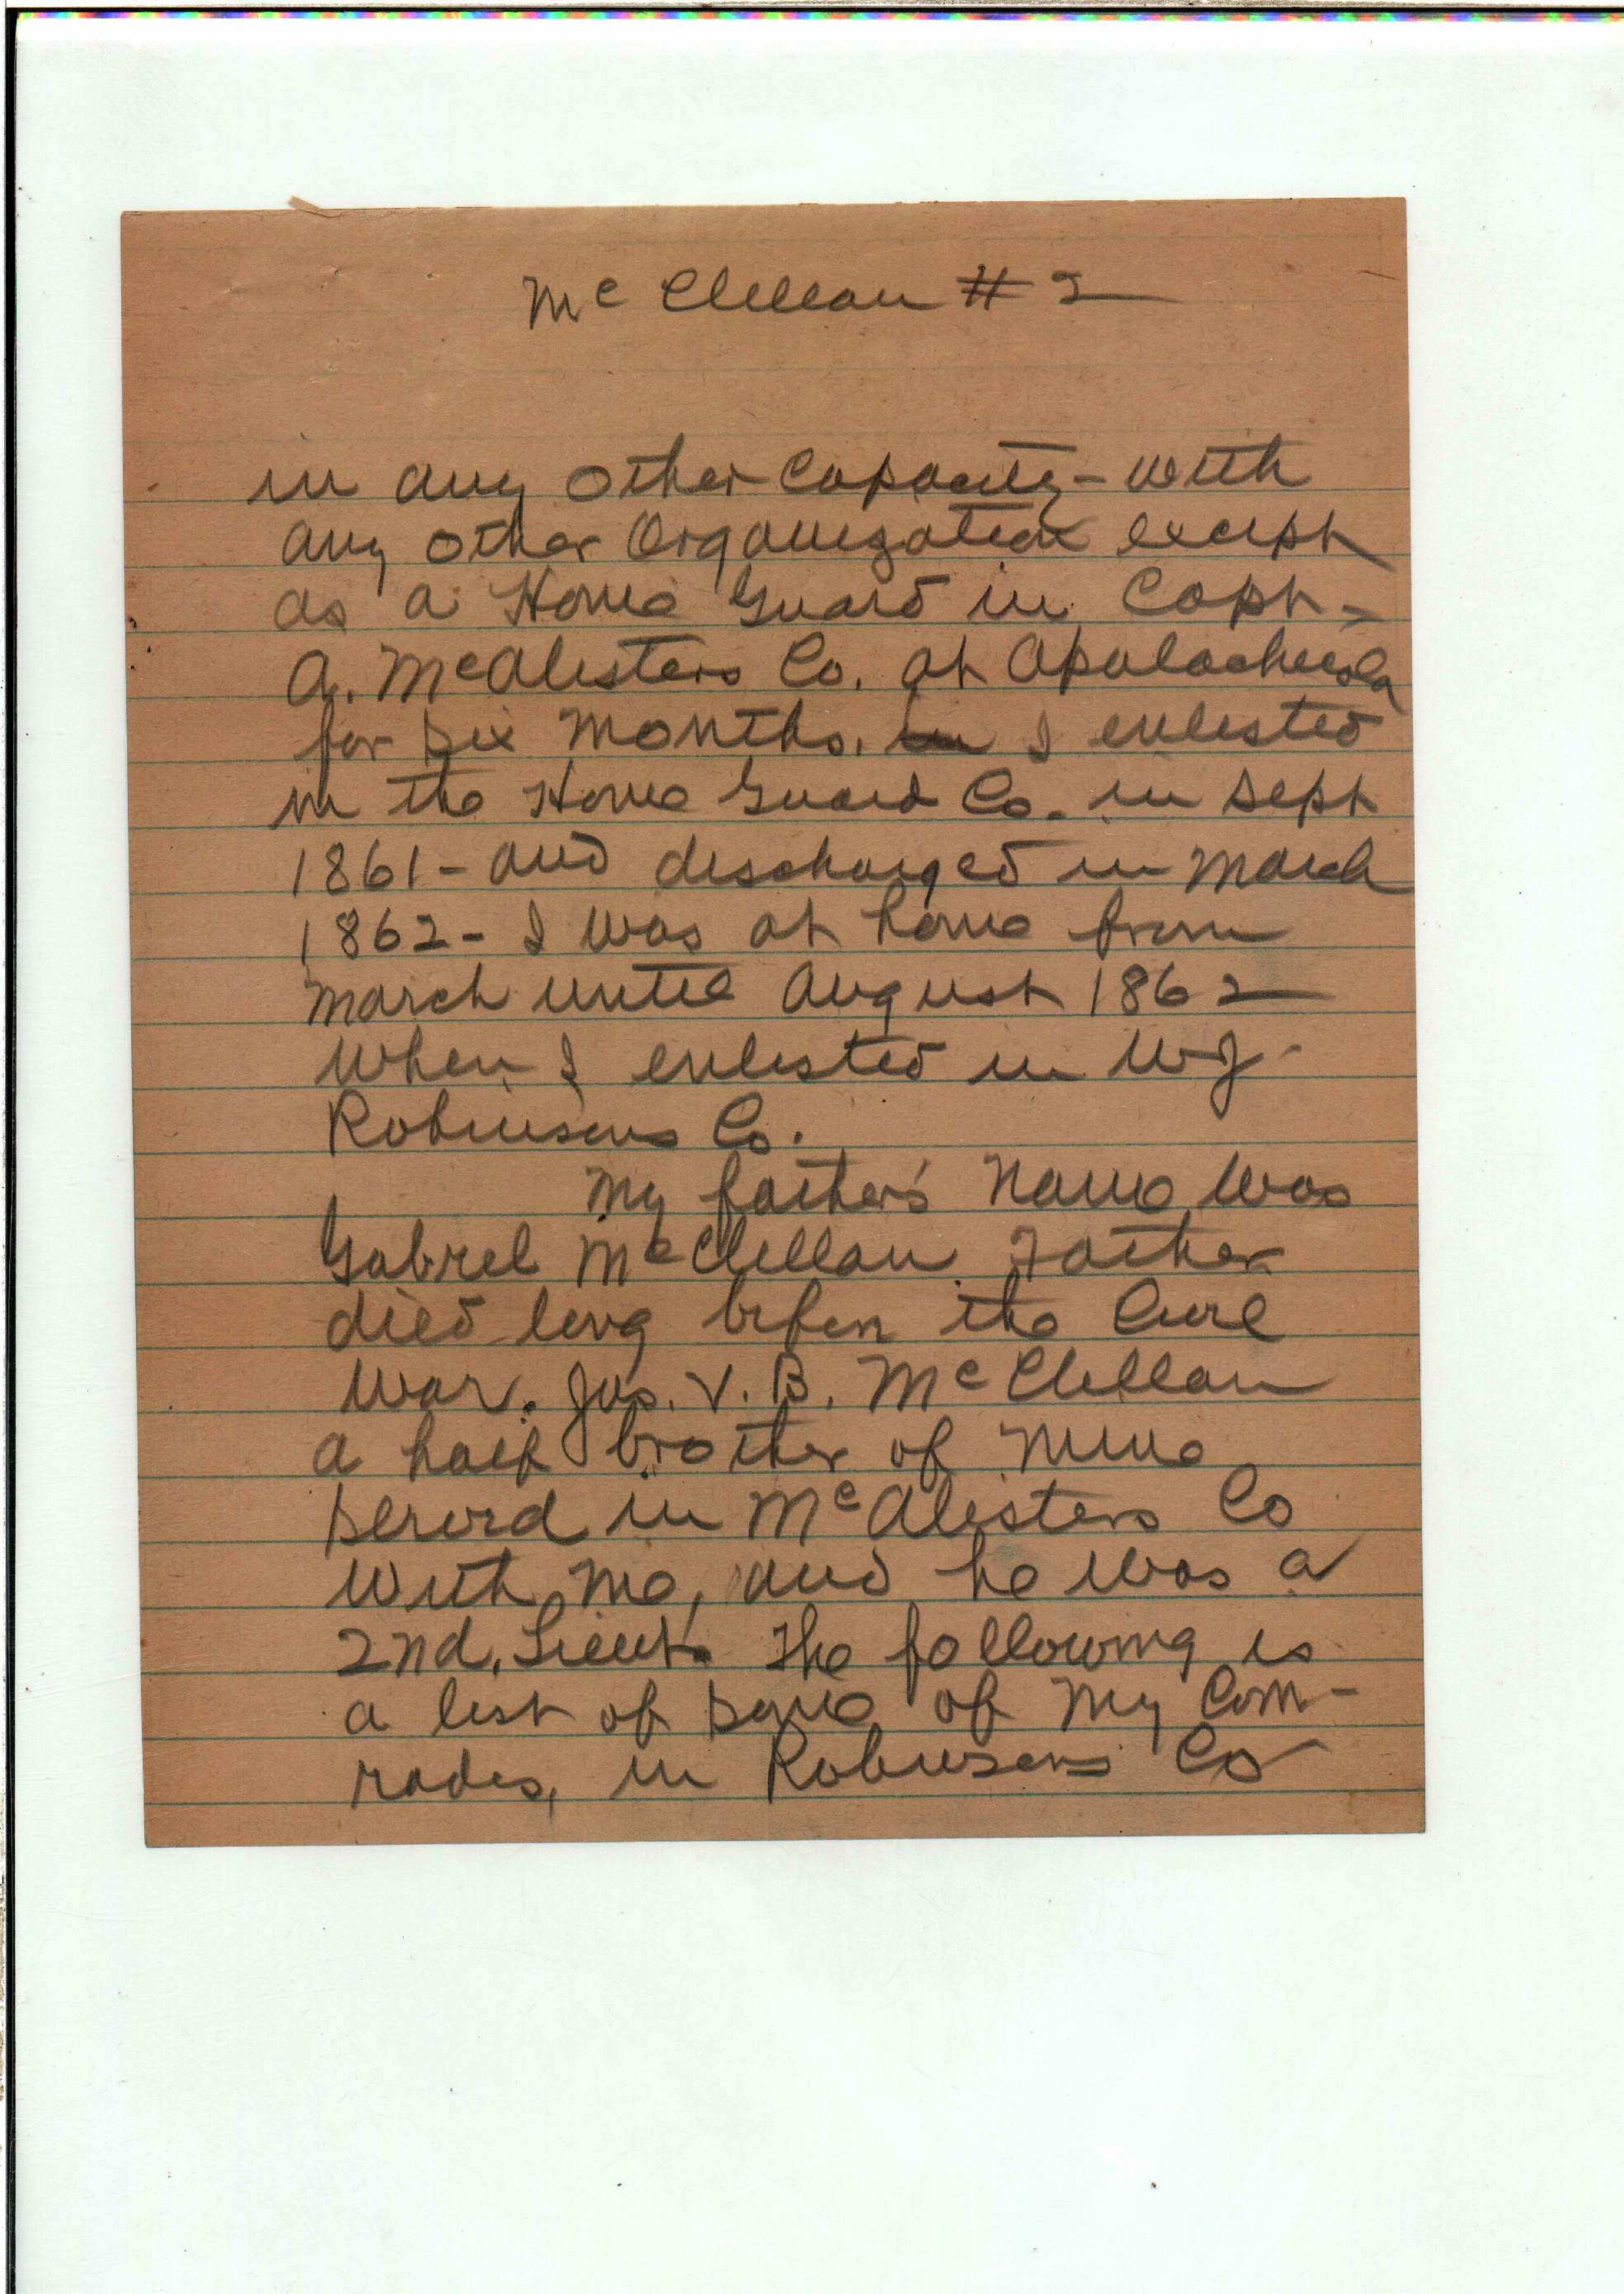 McClellan # 2
in any other capacity - with
any other Organization except
as a Home Guard in Capt -
A. McAlisters Co. at Apalachicola
for six months. in I enlisted
in the Home Guard Co. in Sept
1861 - and discharged in March
1862 - I was at home from
March until August 1862
When I enlisted in W J
Robinsons Co.
My father's name was
Gabrel McClellan Father
died long before the Civil
War. Jas. V. B. McClellan
a half brother of mine
served in McAlisters Co
with me, and he was a
2nd. Lieut. The following is
a list of some of my Com-
rades, in Robinsons Co